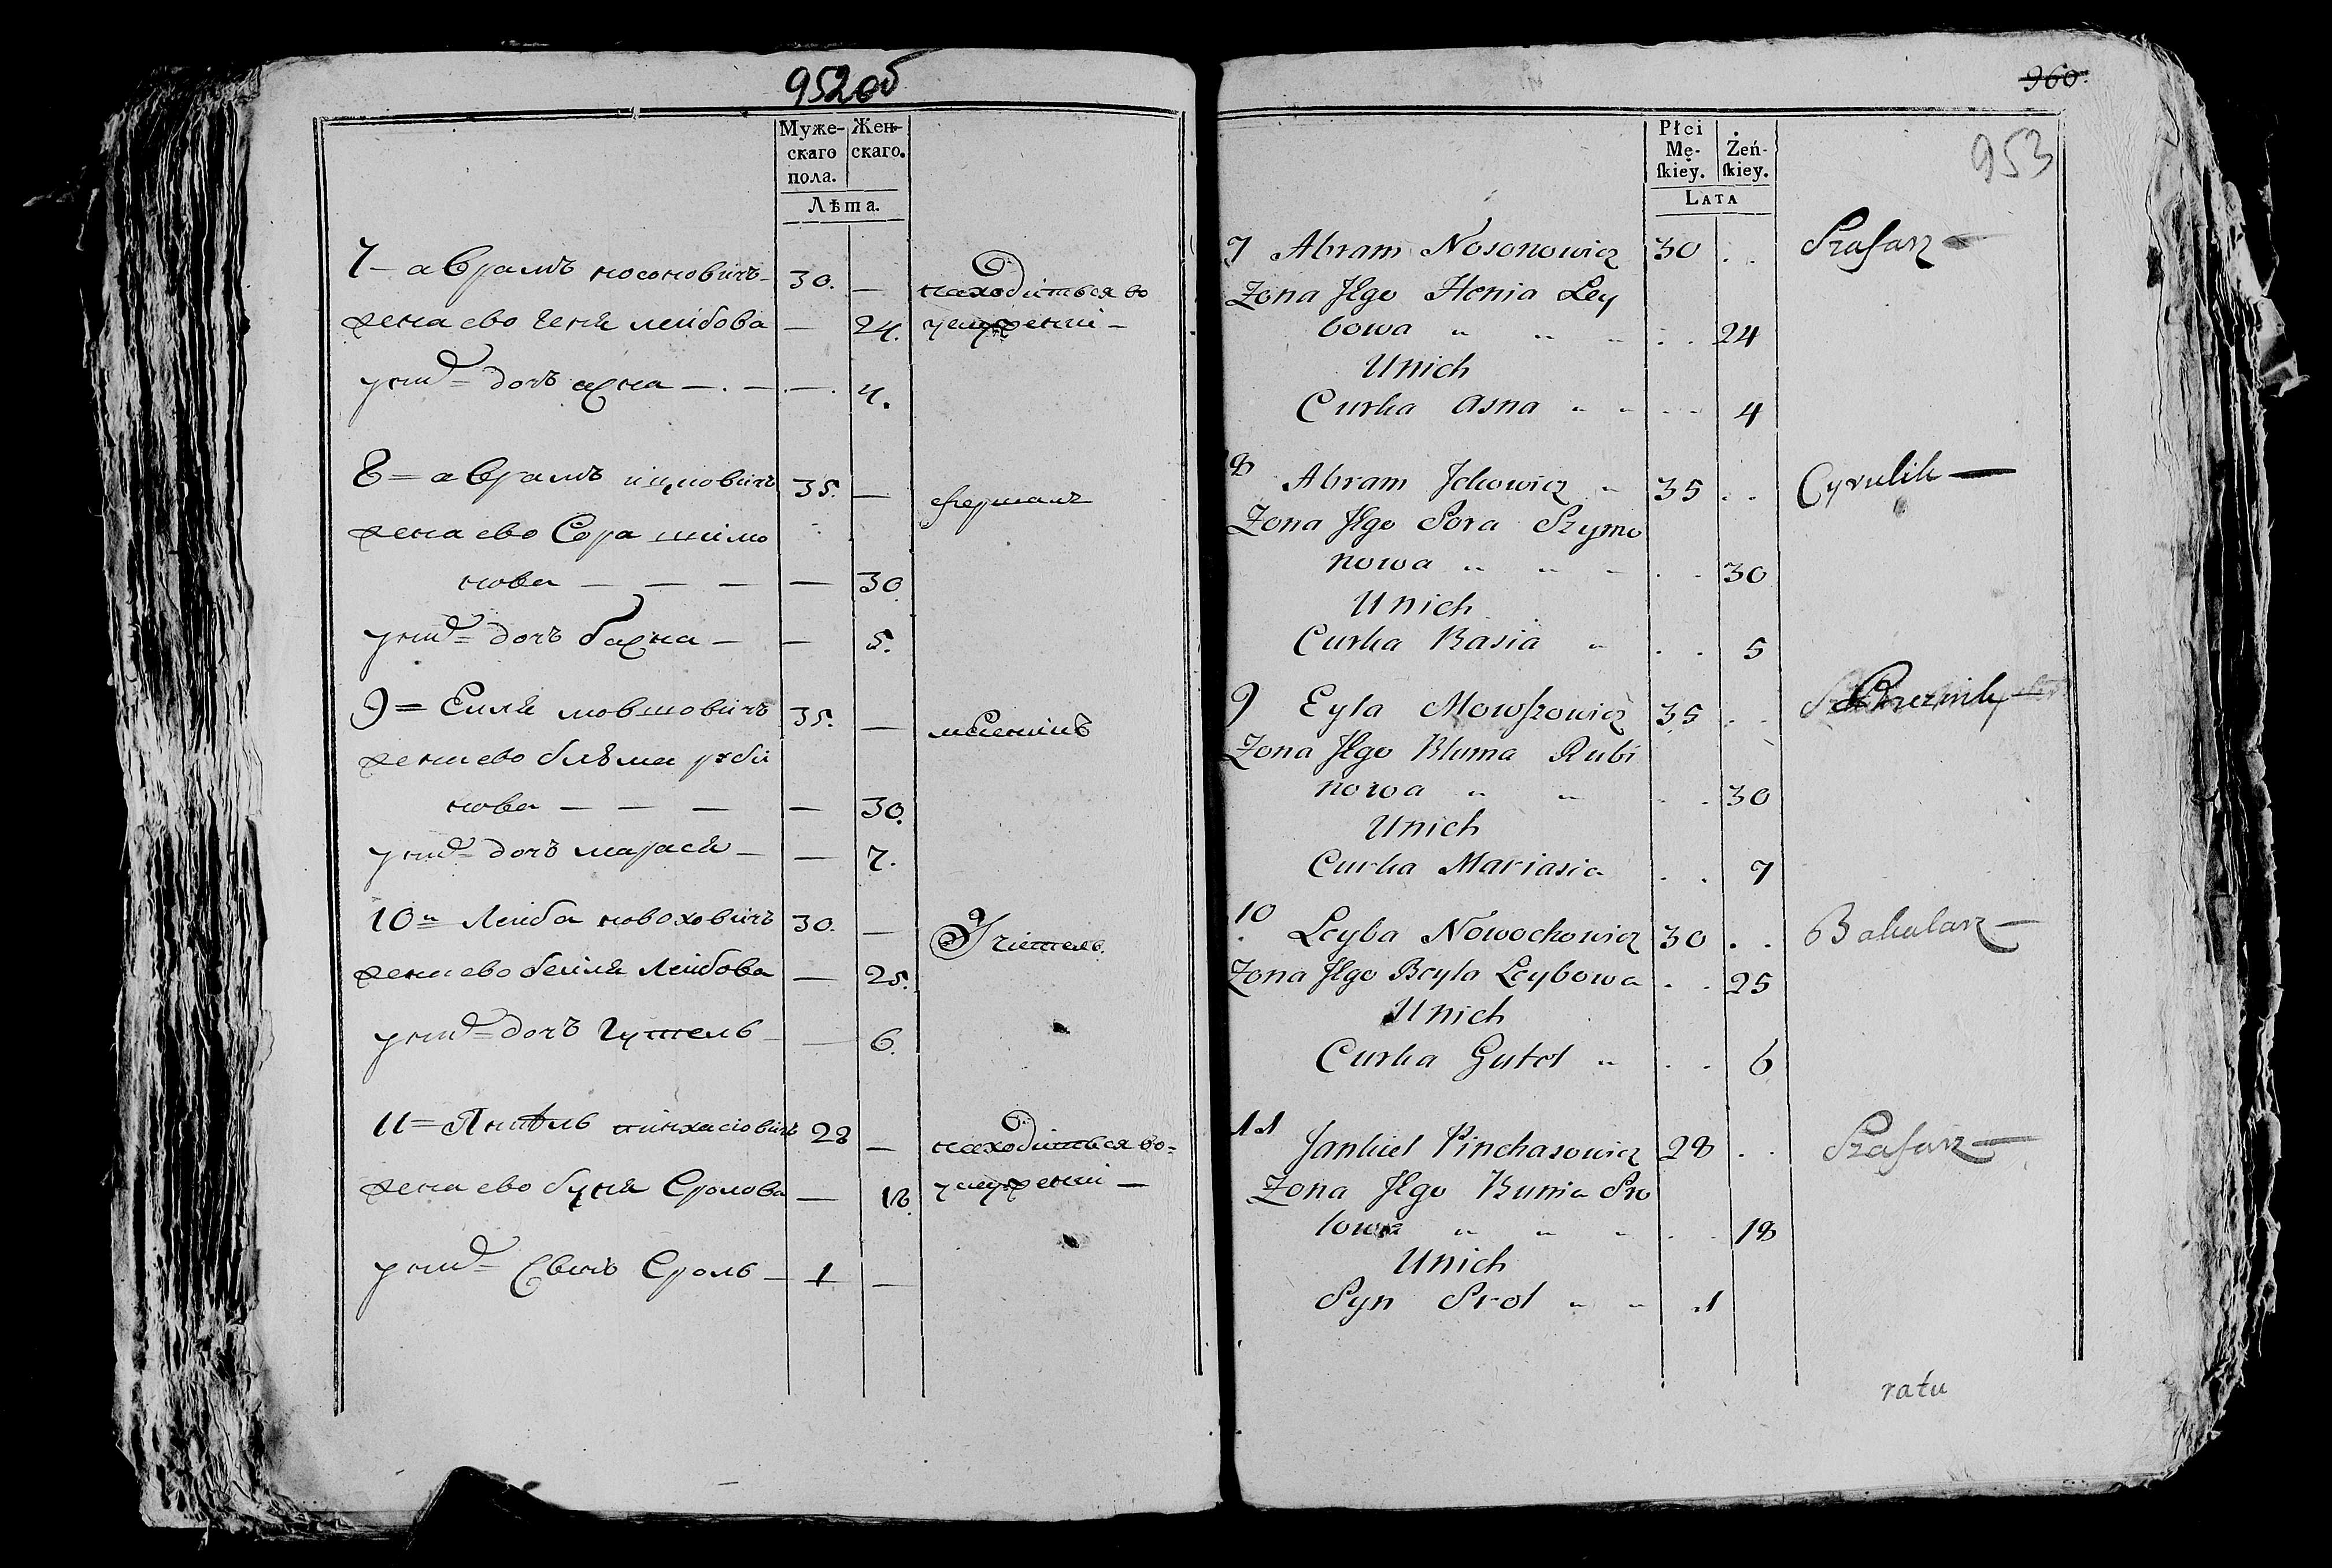 952об
Муже-
скаго
пола.
Жен-
скаго.
Лѣта.
7 – аврамъ носоновичъ – 30. —
жена ево геня лейбова — 24.
находиться во
услуженіи –
у нихъ = дочъ асна — . — — . 4.
8 = аврамъ ицковичъ 35. —
жена ево Сора шимо
нова — — — — 30
у нихъ = дочъ басна — — 5.
9 = Ейля мовшовичъ 35. —
жена ево блюма руби
нова — — — — 30.
у нихъ = дочъ марася — — 7.
10 = Лейба новоховичъ 30. —
Учитель.
жена ево бейля лейбова — 25.
у нихъ = дочъ гутель — — 6.
11 = Янкѣль пинхасовичъ 28 —
находиться во =
жена ево буня Сролова — 18.
услуженіи —
у нихъ = Сынъ Сроль — 1 —
960.
953
Płci
Mę-
ſkiey.
Żeń-
ſkiey.
Lata
7 Abram Nosonowicz 30 . . Szafarz —
Zona Jego Henia Ley
bowa " " " . . 24
Unich
Curka Asna " " . . 4
8 Abram Jckowicz " 35 . . Cyrulik —
Zona Jego Sora Szymo
nowa " " " . . 30
Unich
Curka Basia " . . 5
9 Eyla Mowſzowicz 35 . .
Zona Jego Bluma Rubi
nowa " " . . 30
Unich
Curka Mariasia . . 7
10 Leyba Nowochowicz 30 . . Bakalarz —
Zona Jego Beyla Leybowa . . 25
Unich
Curka Gutel " . . 6
11 Jankiel Pinchasowicz 28 . . Szafarz —
Zona Jego Bunia Sro
lowa " " " . . 18
Unich
Syn Srol " " 1
ratu